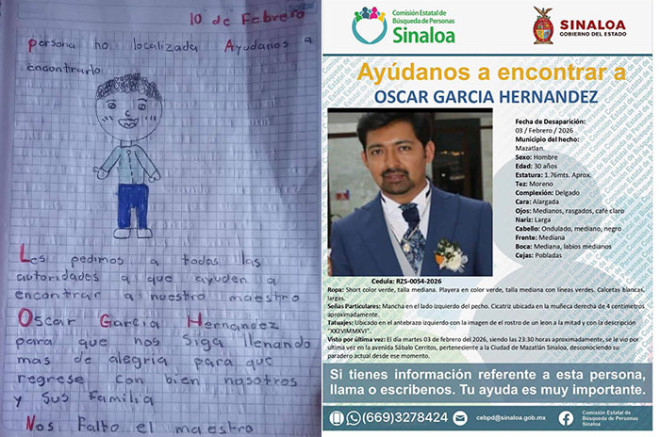 10 de Febrero
persona no localizada Ayudanos a
encontrarlo
Les pedimos a todas las
autoridades a que ayuden a
encontrar a nuestro maestro
Oscar Garcia Hernandez
para que nos siga llenando
mas de alegria para que
regrese con bien nosotros
y Sus Familia
Nos Falto el maestro
Comisión Estatal de
Búsqueda de Personas
Sinaloa
SINALOA
GOBIERNO DEL ESTADO
Ayúdanos a encontrar a
OSCAR GARCIA HERNANDEZ
Fecha de Desaparición:
03 / Febrero / 2026
Municipio del hecho:
Mazatlan.
Sexo: Hombre
Edad: 30 años
Estatura: 1.76mts. Aprox.
Tez: Moreno
Complexión: Delgado
Cara: Alargada
Ojos: Medianos, rasgados, café claro
Nariz: Larga
Cabello: Ondulado, mediano, negro
Frente: Mediana
Boca: Mediana, labios medianos
Cejas: Pobladas
Cedula: RZS-0054-2026
Ropa: Short color verde, talla mediana. Playera en color verde, talla mediana con líneas verdes. Calcetas blancas,
largas.
Señas Particulares: Mancha en el lado izquierdo del pecho. Cicatriz ubicada en la muñeca derecha de 4 centímetros
aproximadamente.
Tatuajes: Ubicado en el antebrazo izquierdo con la imagen de el rostro de un leon a la mitad y con la descripción
Visto por última vez: El día martes 03 de febrero del 2026, siendo las 23:30 horas aproximadamente, se le vio por
ultima vez en la avenida Sábalo Cerritos, perteneciente a la Ciudad de Mazatlán Sinaloa, desconociendo su
paradero actual desde ese momento.
Si tienes información referente a esta persona,
llama o escribenos. Tu ayuda es muy importante.
(669)3278424
cebpd@sinaloa.gob.mx
Comisión Estatal
de Búsqueda de Personas
Sinaloa